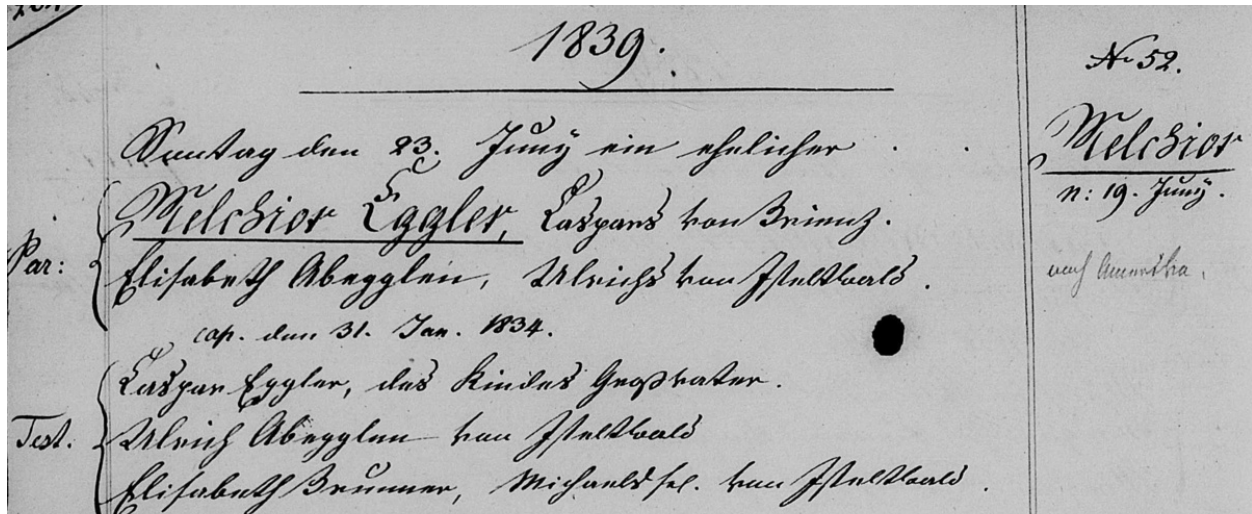 1839.
Sontag den 23. Juny ein ehelicher
Par:
Melchior Eggler, Caspars von Brienz.
Elisabeth Abegglen, Ulrichs von Iseltwald.
cop. den 31. Jan. 1834.
Test.
Caspar Eggler, des Kindes Großvater.
Ulrich Abegglen von Iseltwald
Elisabeth Brunner, Michaels sel. von Iseltwald.
No 52.
Melchior
n: 19. Juny.
nach Amerika.